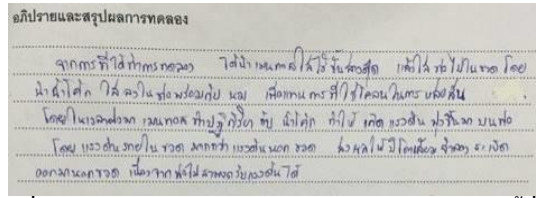 อภิปรายและสรุปผลการทดลอง
จากการที่ได้ทำการทดลอง ได้นำเมนทอสใส่ไว้ชั้นล่างสุด แล้วใส่ท่อไปในขวด โดย
นำน้ำโค้ก ใส่ลงในท่อพร้อมกับ นม เพื่อแทนการที่ใช้โคลนในการ
โดยในเวลาต่อมา เมนทอสทำปฏิกิริยา กับ น้ำโค้ก ทำให้ เกิด แรงดัน พุ่งขึ้นมา บนท่อ
โดย แรงดันภายใน ขวด มากกว่า แรงดันนอก ขวด ส่งผลให้ ระเบิด
ออกมานอกขวด เนื่องจาก ท่อไม่สามารถรับแรงดันได้